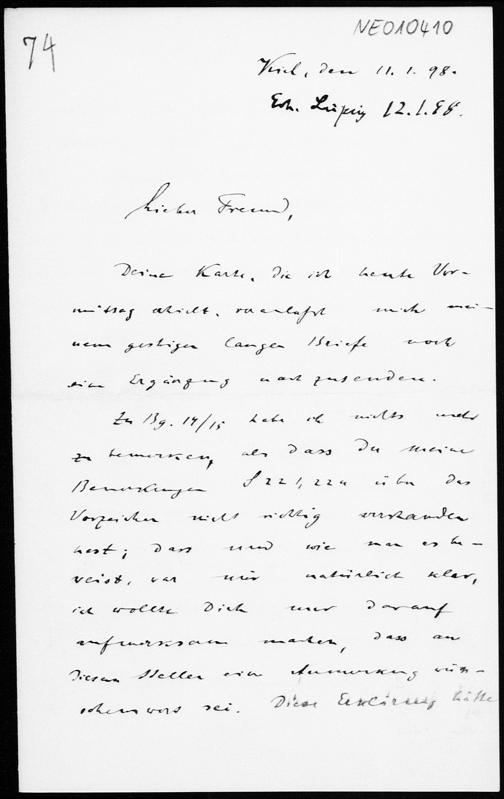 NE010410
74
Kiel, den 11.1.98.
Erh. Leipzig 12.1.98.
Lieber Freund,
Deine Karte, die ich heute Vor-
mittag erhielt, veranlasst mich mei-
nem gestrigen langen Briefe noch
eine Ergänzung nachzusenden.
Zu Bg. 14/15 habe ich nichts mehr
zu bemerken, als dass Du meine
Bemerkungen S 221, 224 über das
Vorzeichen nicht richtig verstanden
hast; dass und wie man es be-
weist, war mir natürlich klar,
ich wollte Dich nur darauf
aufmerksam machen, dass an
diesen Stellen eine Anmerkung wün-
schenswert sei. Diese Erklärung hätte